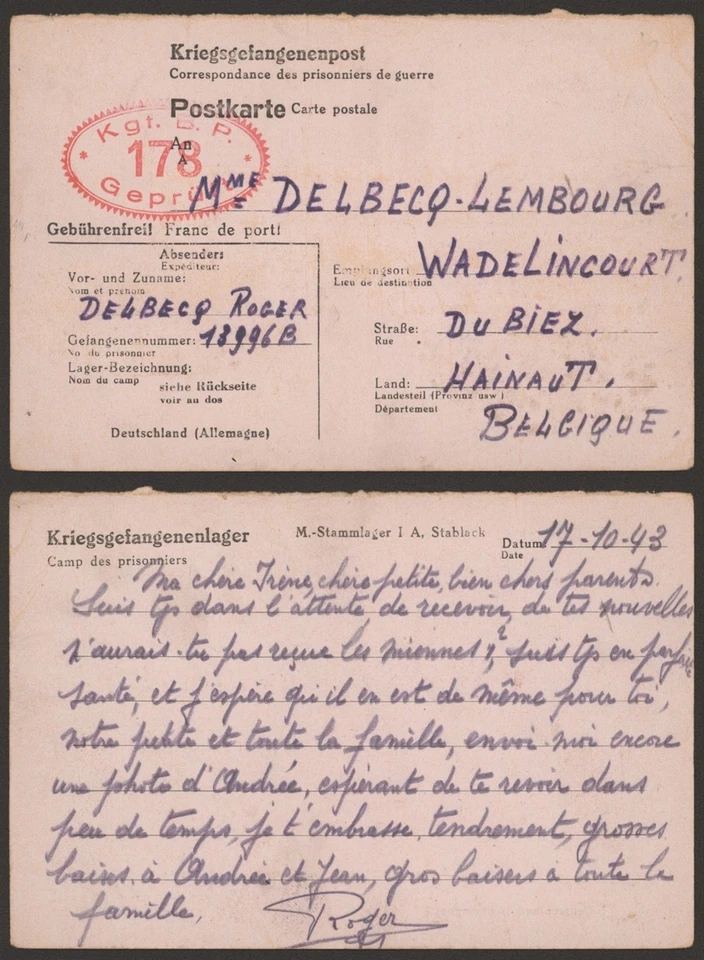 Kriegsgefangenenpost
Correspondance des prisonniers de guerre
Postkarte Carte postale
Kgf. B. P.
178
Geprüft
An
A
Mme DELBECQ-LEMBOURG
Gebührenfrei! Franc de port!
Absender:
Expéditeur:
Vor- und Zuname:
Nom et prénom
DELBECQ ROGER
Gefangenennummer: 13996B
No du prisonnier
Lager-Bezeichnung:
Nom du camp
siehe Rückseite
voir au dos
Deutschland (Allemagne)
Empfangsort WADELINCOURT.
Lieu de destination
Straße: DU BIEZ.
Rue
Land: HAINAUT.
Landesteil (Provinz usw)
Département
BELGIQUE.
Kriegsgefangenenlager
Camp des prisonniers
M.-Stammlager I A, Stablack
Datum 17-10-43
Date
Ma chère Irène, chère petite, bien chers parents.
Suis tjs dans l'attente de recevoir, de tes nouvelles
n'aurais-tu pas reçue les miennes ?, suis tjs en parfaite
santé, et j'espère qu'il en est de même pour toi,
notre petite et toute la famille, envoi-moi encore
une photo d'Andrée, espérant de te revoir dans
peu de temps, je t'embrasse, tendrement, grosses
baises à Andrée et Jean, gros baisers à toute la
famille,
Roger